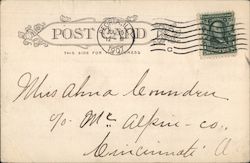 POST CARD
THIS SIDE FOR THE ADDRESS
1907
C
Miss Alma
c/o Mc Alpin - co.,
Cincinnati O.